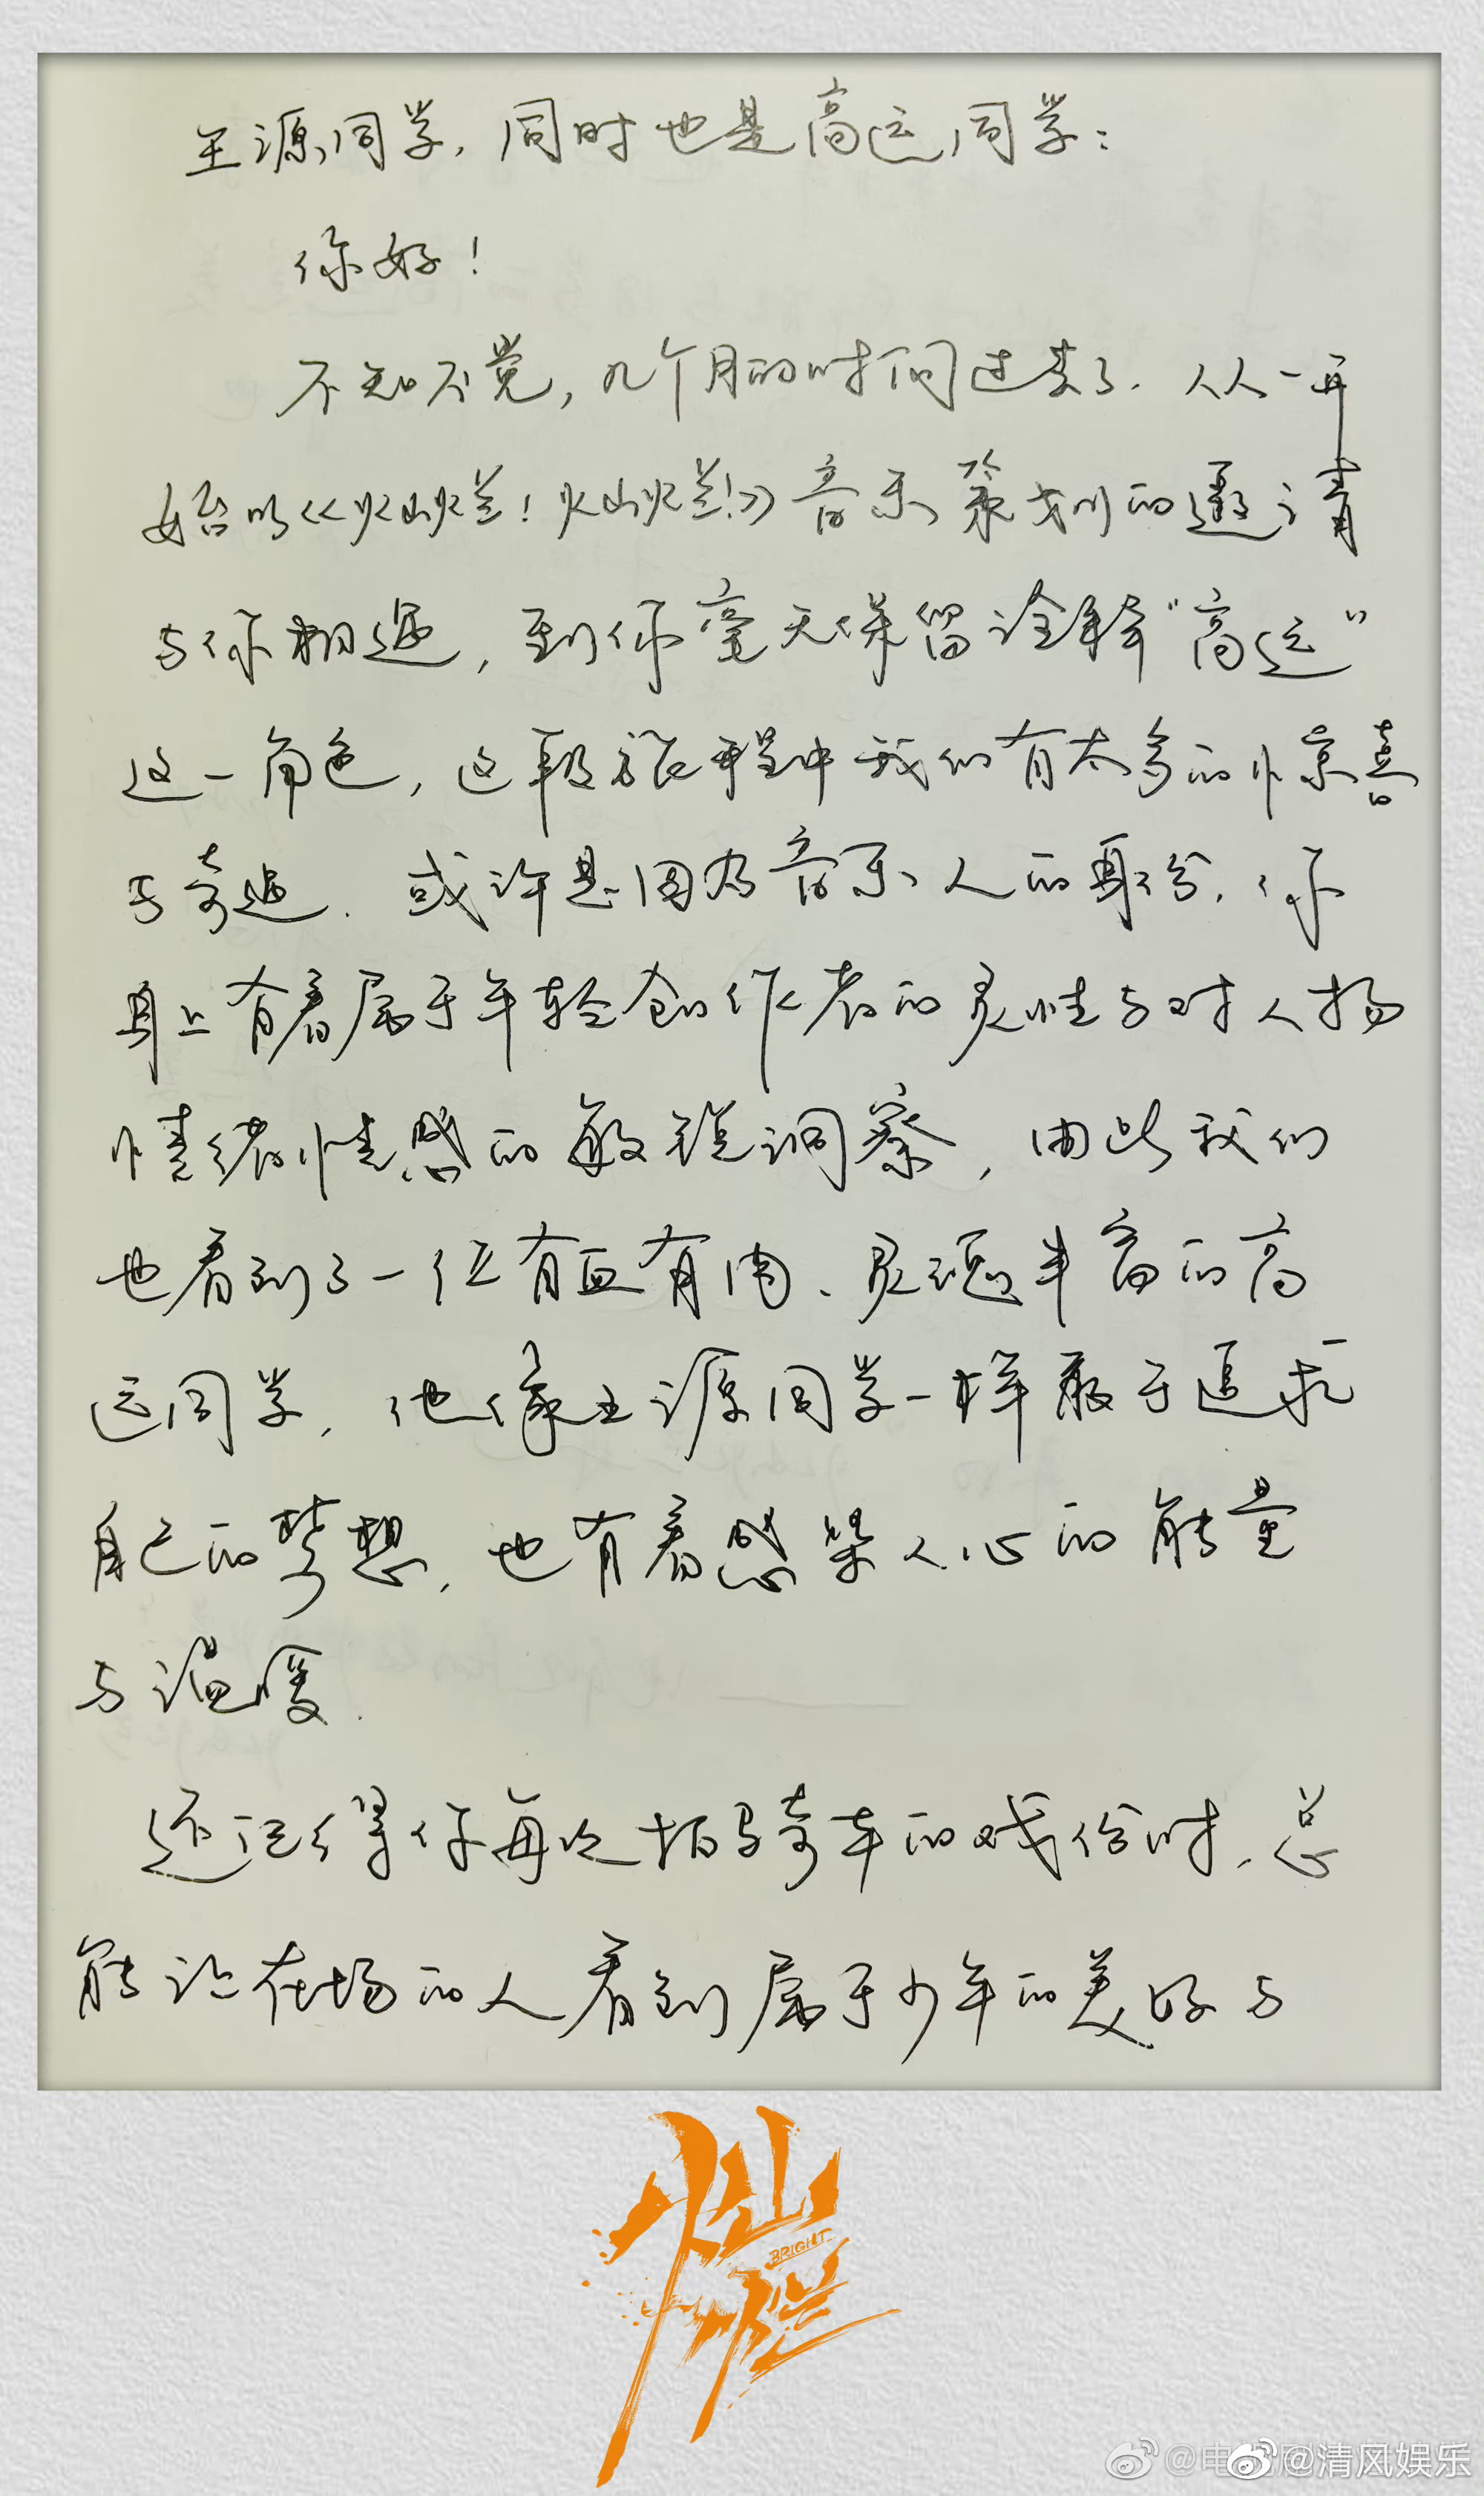 王源同学，同时也是高远同学：
你好！
不知不觉，几个月的时间过去了．从一开
始以《灿烂！灿烂！》音乐策划的邀请
与你相遇，到你毫无保留诠释“高远”
这一角色，这段旅程中我们有太多的惊喜
与奇遇．或许是因为音乐人的身份，你
身上有着属于年轻创作者的灵性与对人物
情绪情感的敏锐洞察，由此我们
也看到了一位有血有肉、灵魂丰富的高
远同学，他像王源同学一样敢于追求
自己的梦想，也有着感染人心的能量
与温暖．
还记得你每次拍骑车的戏份时，总
能让在场的人看到属于少年的美好与
灿烂
BRIGHT
@清风娱乐